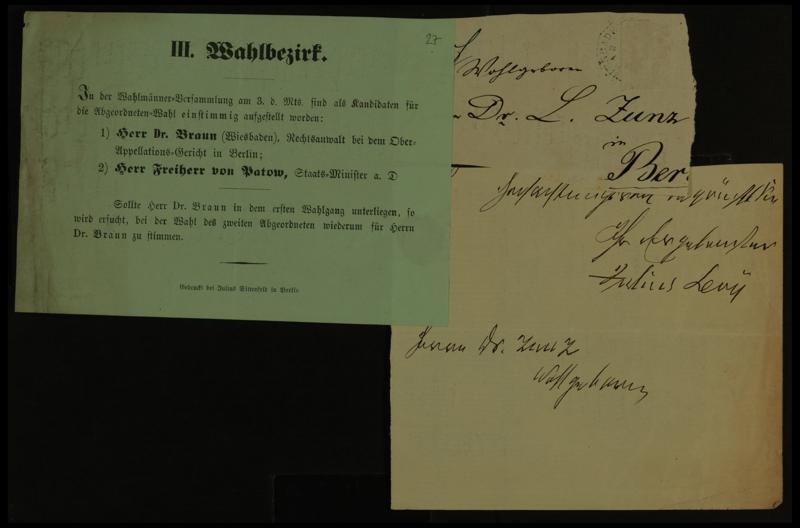 27
III. Wahlbezirk.
In der Wahlmänner-Versammlung am 3. d. Mts. sind als Kandidaten für
die Abgeordneten-Wahl einstimmig aufgestellt worden:
1) Herr Dr. Braun (Wiesbaden), Rechtsanwalt bei dem Ober-
Appellations-Gericht in Berlin;
2) Herr Freiherr von Patow, Staats-Minister a. D
Sollte Herr Dr. Braun in dem ersten Wahlgang unterliegen, so
wird ersucht, bei der Wahl des zweiten Abgeordneten wiederum für Herrn
Dr. Braun zu stimmen.
Gedruckt bei Julius Sittenfeld in Berlin
Wohlgeboren
Dr. L. Zunz
in
Ber.
Ihr Ergebenster
Julius Levy
Herrn Dr. Zunz
Wohlgeboren